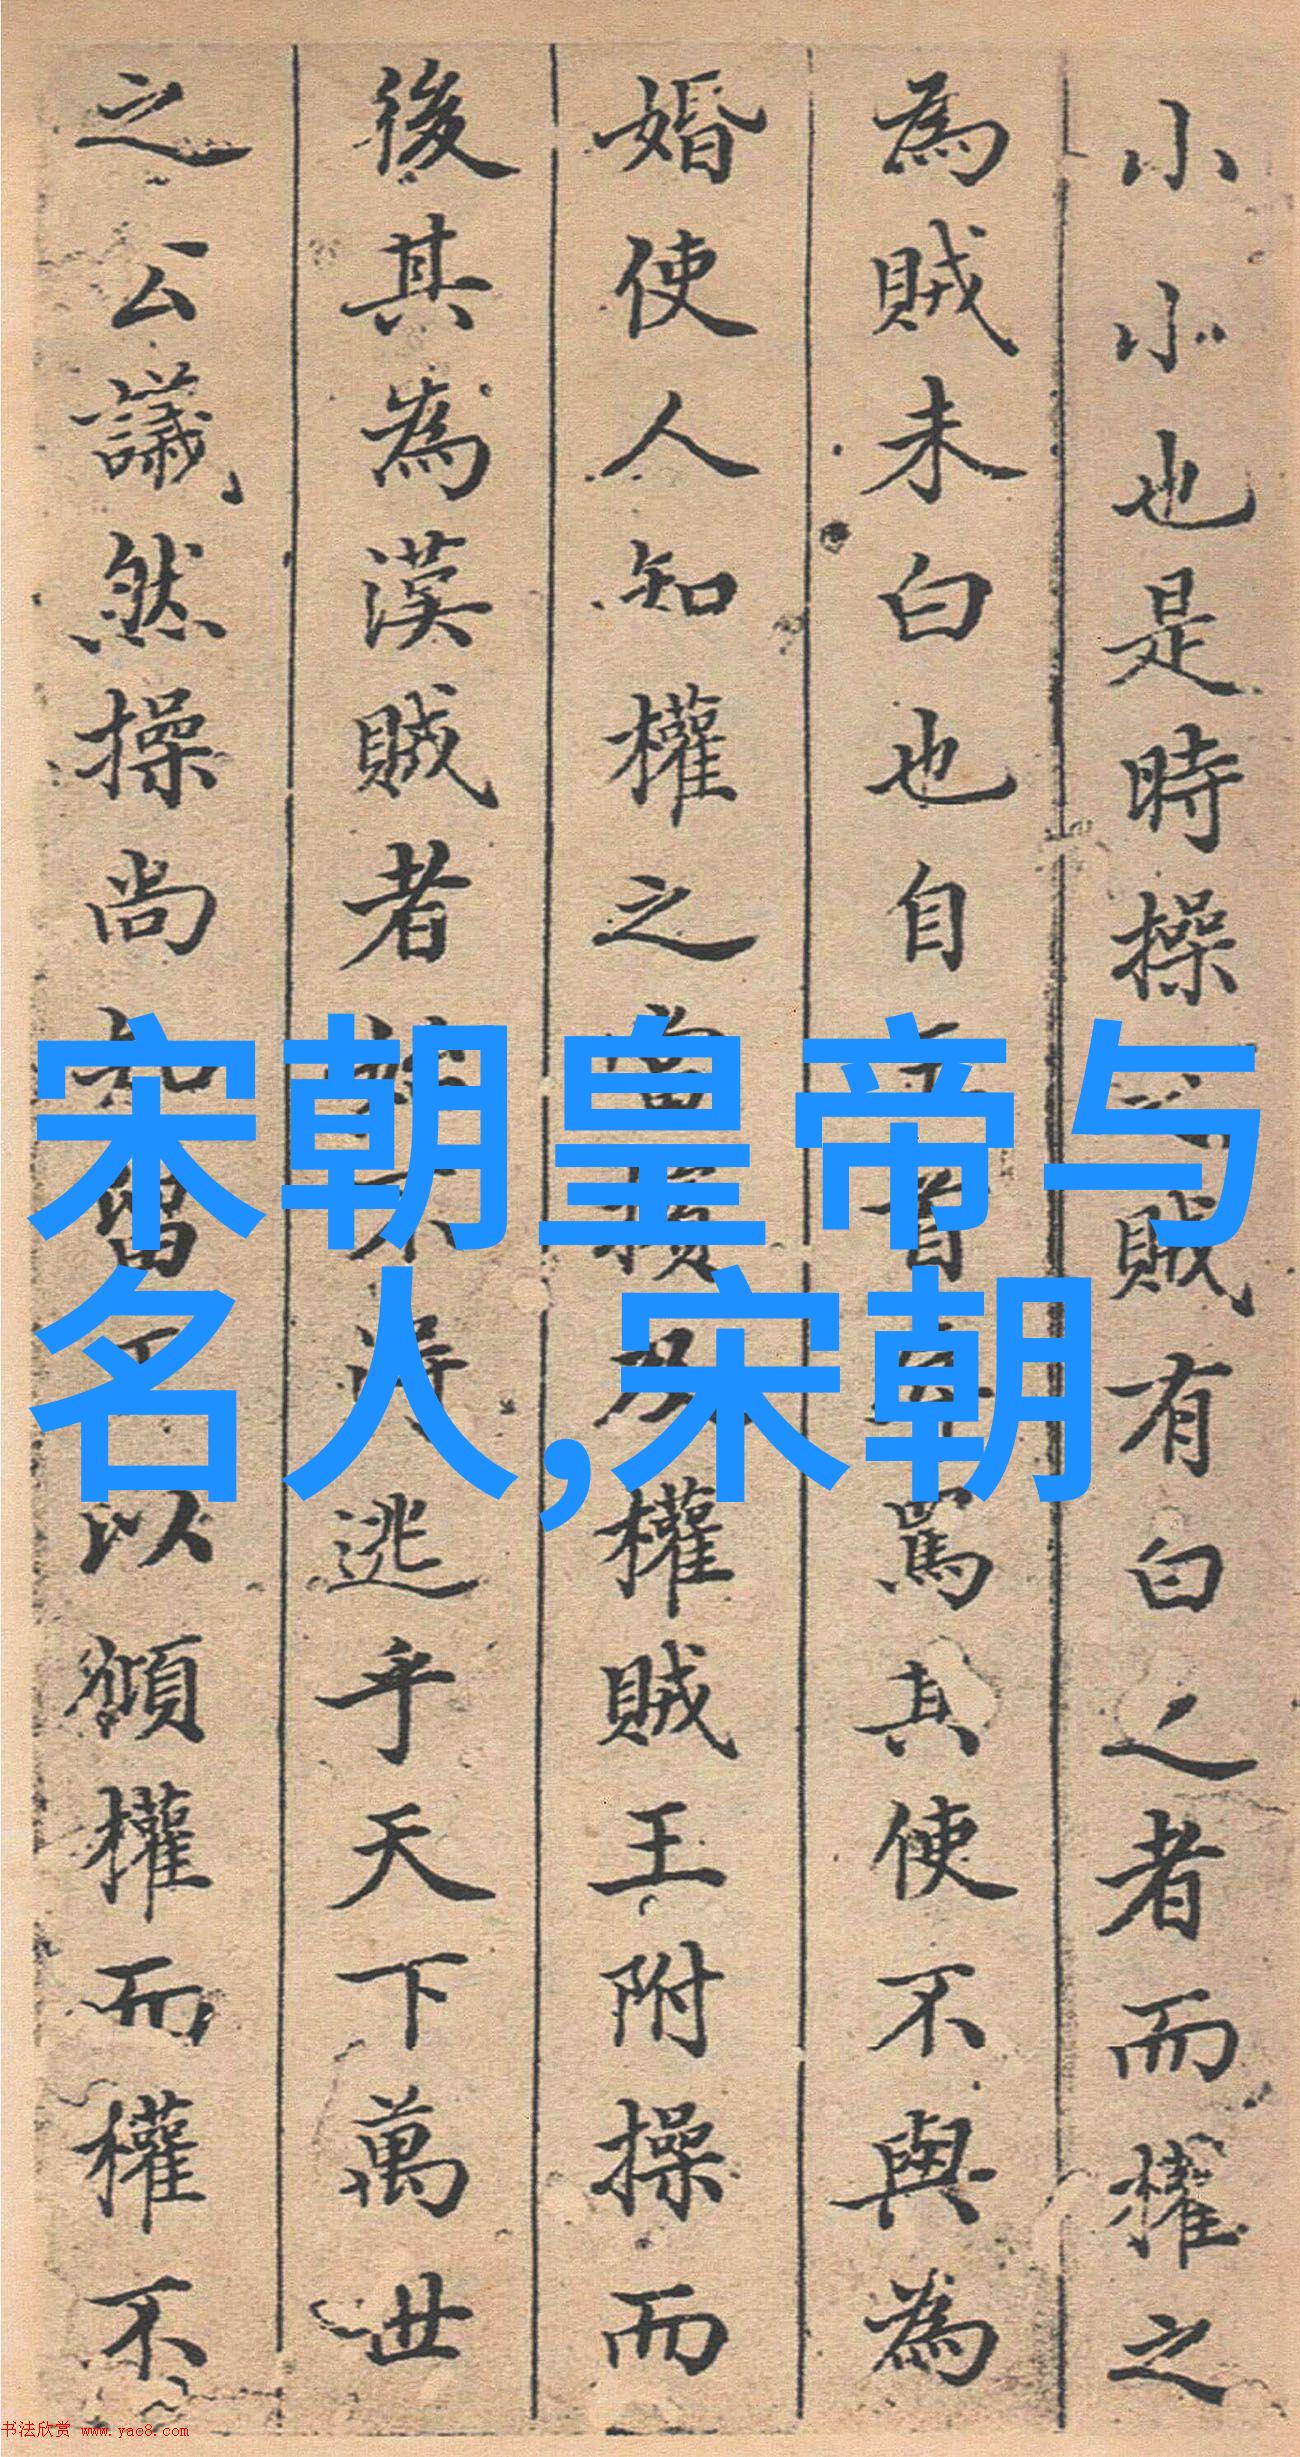 小小也是時操之賊有白之者而權之
為賊未白也自首罵其使不與為
婚使人知權之權賊王附操而
後其為漢賊者不得逃乎天下萬世
之公議然操尚知以權而權不
宋朝皇帝与
名人,宋朝
书法欣赏 www.yac8.com